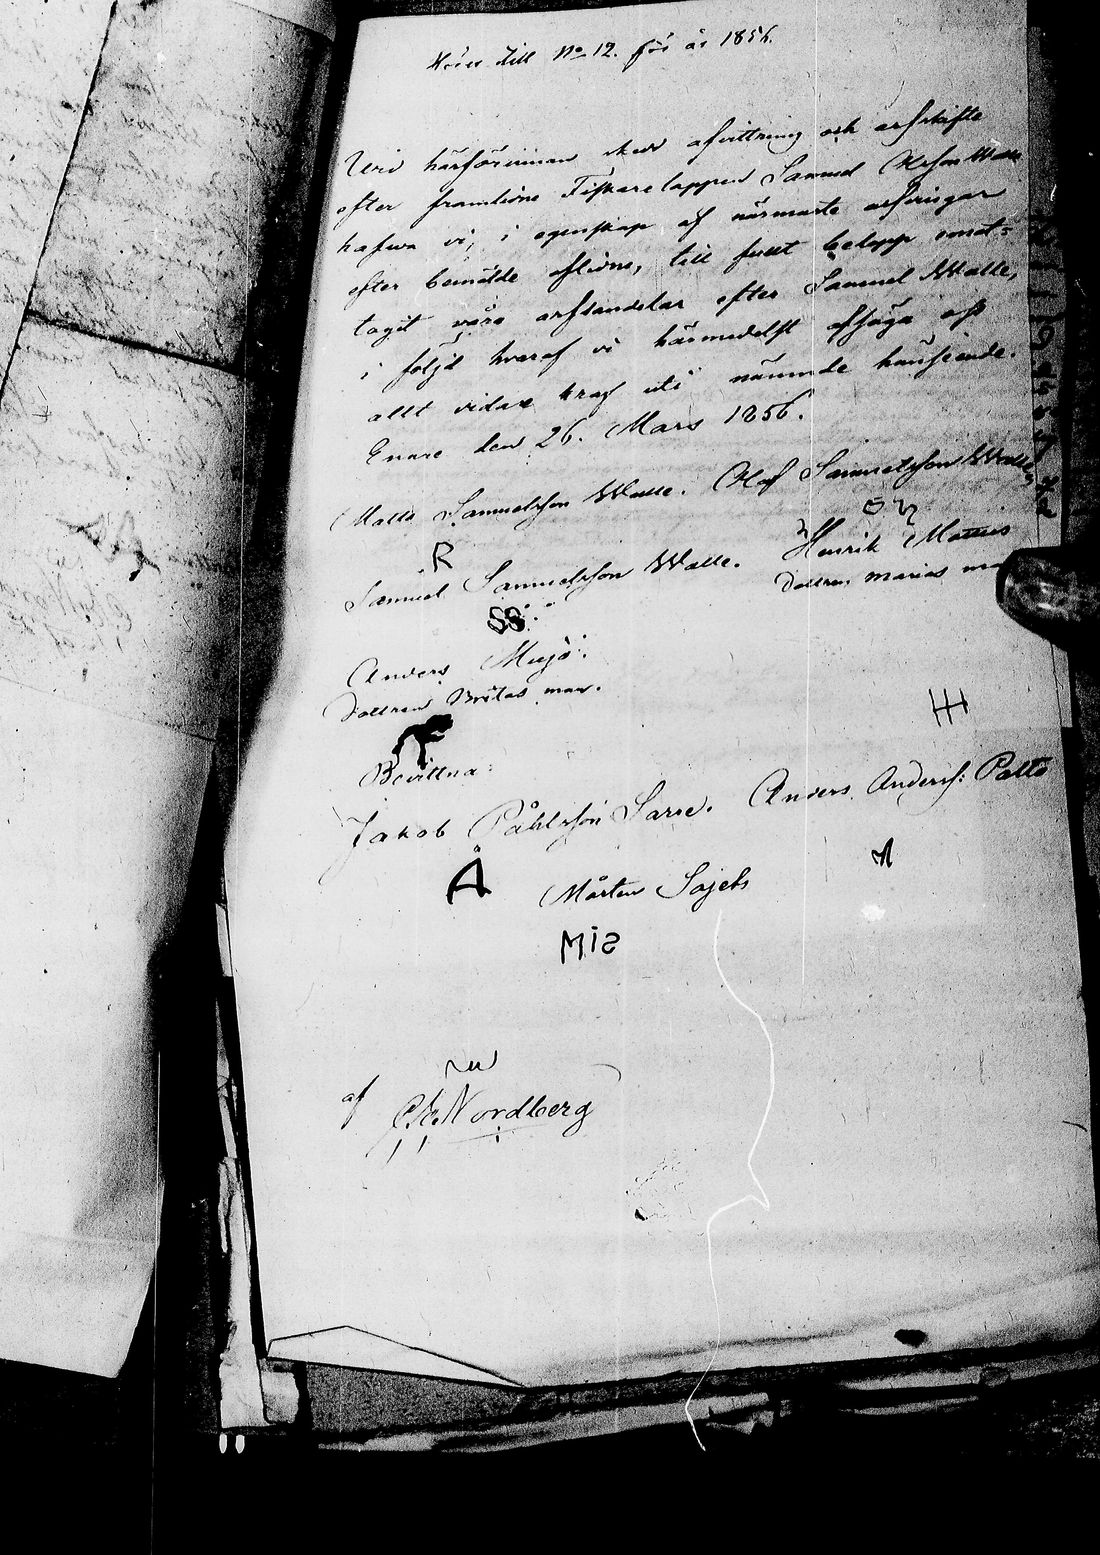 Hörer till No 12. för år 1856.
Uti härförinnan skedd afvittning och arfskifte
efter framlidne Fiskarelappen Samuel Olofson Walle
hafwa vi, i egenskap af närmaste arfvingar
efter bemälde aflidne, till fullt belopp emot-
tagit våra arfsandelar efter Samuel Walle,
i följd hvaraf vi härmedelst afsäga oss
allt vidare kraf uti nämnde hänseende.
Enare den 26. Mars 1856.
Matts Samuelsson Walle. Olof Samuelsson Walle
R
Samuel Samuelsson Walle. Henrik Mattus
dottren Marias man
SS
Anders Mujo.
Dottren Britas man.
Bevittna:
Jakob Påhlsson Sarre. Anders Anderss: Palto
Å
Mårten Sajets
MiS
af
Nordberg